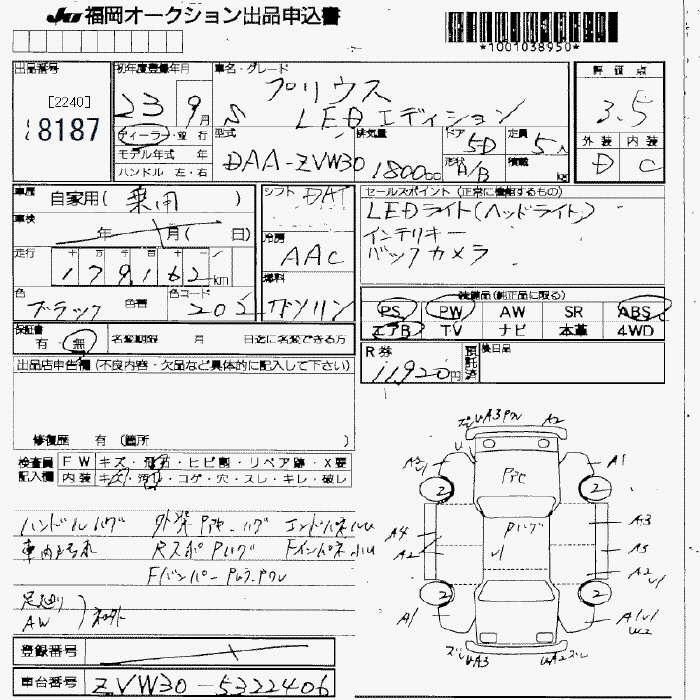 JU 福岡オークション出品申込書
*1001038950*
出品番号 初年度登録年月 車名・グレード 評価点
[2240]
8187
23 9月
プリウス
S LEDエディション
3.5
ディーラー・並行 型式 排気量 ドア 定員 外装 内装
モデル年式 年 DAA-ZVW30 1800cc 5D 5人 D C
ハンドル 左・右 形状 A/B 積載 kg
車歴 自家用(乗用) シフト DAT セールスポイント(正常に機能するもの)
車検 年 月(日) LEDライト(ヘッドライト)
冷房 AAC インテリキー
走行 十 万 千 百 十 一 バックカメラ
179162km
燃料 ガソリン
色 ブラック 色替 色コード 202
装備品(純正品に限る)
PS PW AW SR ABS
エアB TV ナビ 本革 4WD
保証書 有・無 名変期限 月 日迄に名変できる方
R券 11920円 預託済 後日品
出品店申告欄(不良内容・欠品など具体的に記入して下さい)
修復歴 有(箇所 )
検査員 FW キズ・ ・ヒビ割・リペア跡・X要
記入欄 内装 キズ・汚れ・コゲ・穴・スレ・キレ・破レ
ハンドルハゲ
車内汚れ
足廻り
AW
A3 A2
A1
2 2
A4 A3
A2 A3
A2
2 2
A1
A3 A2
登録番号
車台番号 ZVW30-5322406